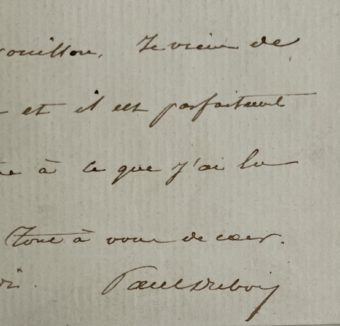 Je viens de
et il est parfaitement
à ce que j'ai lu
Tout à vous de cœur.
Paul Dubois